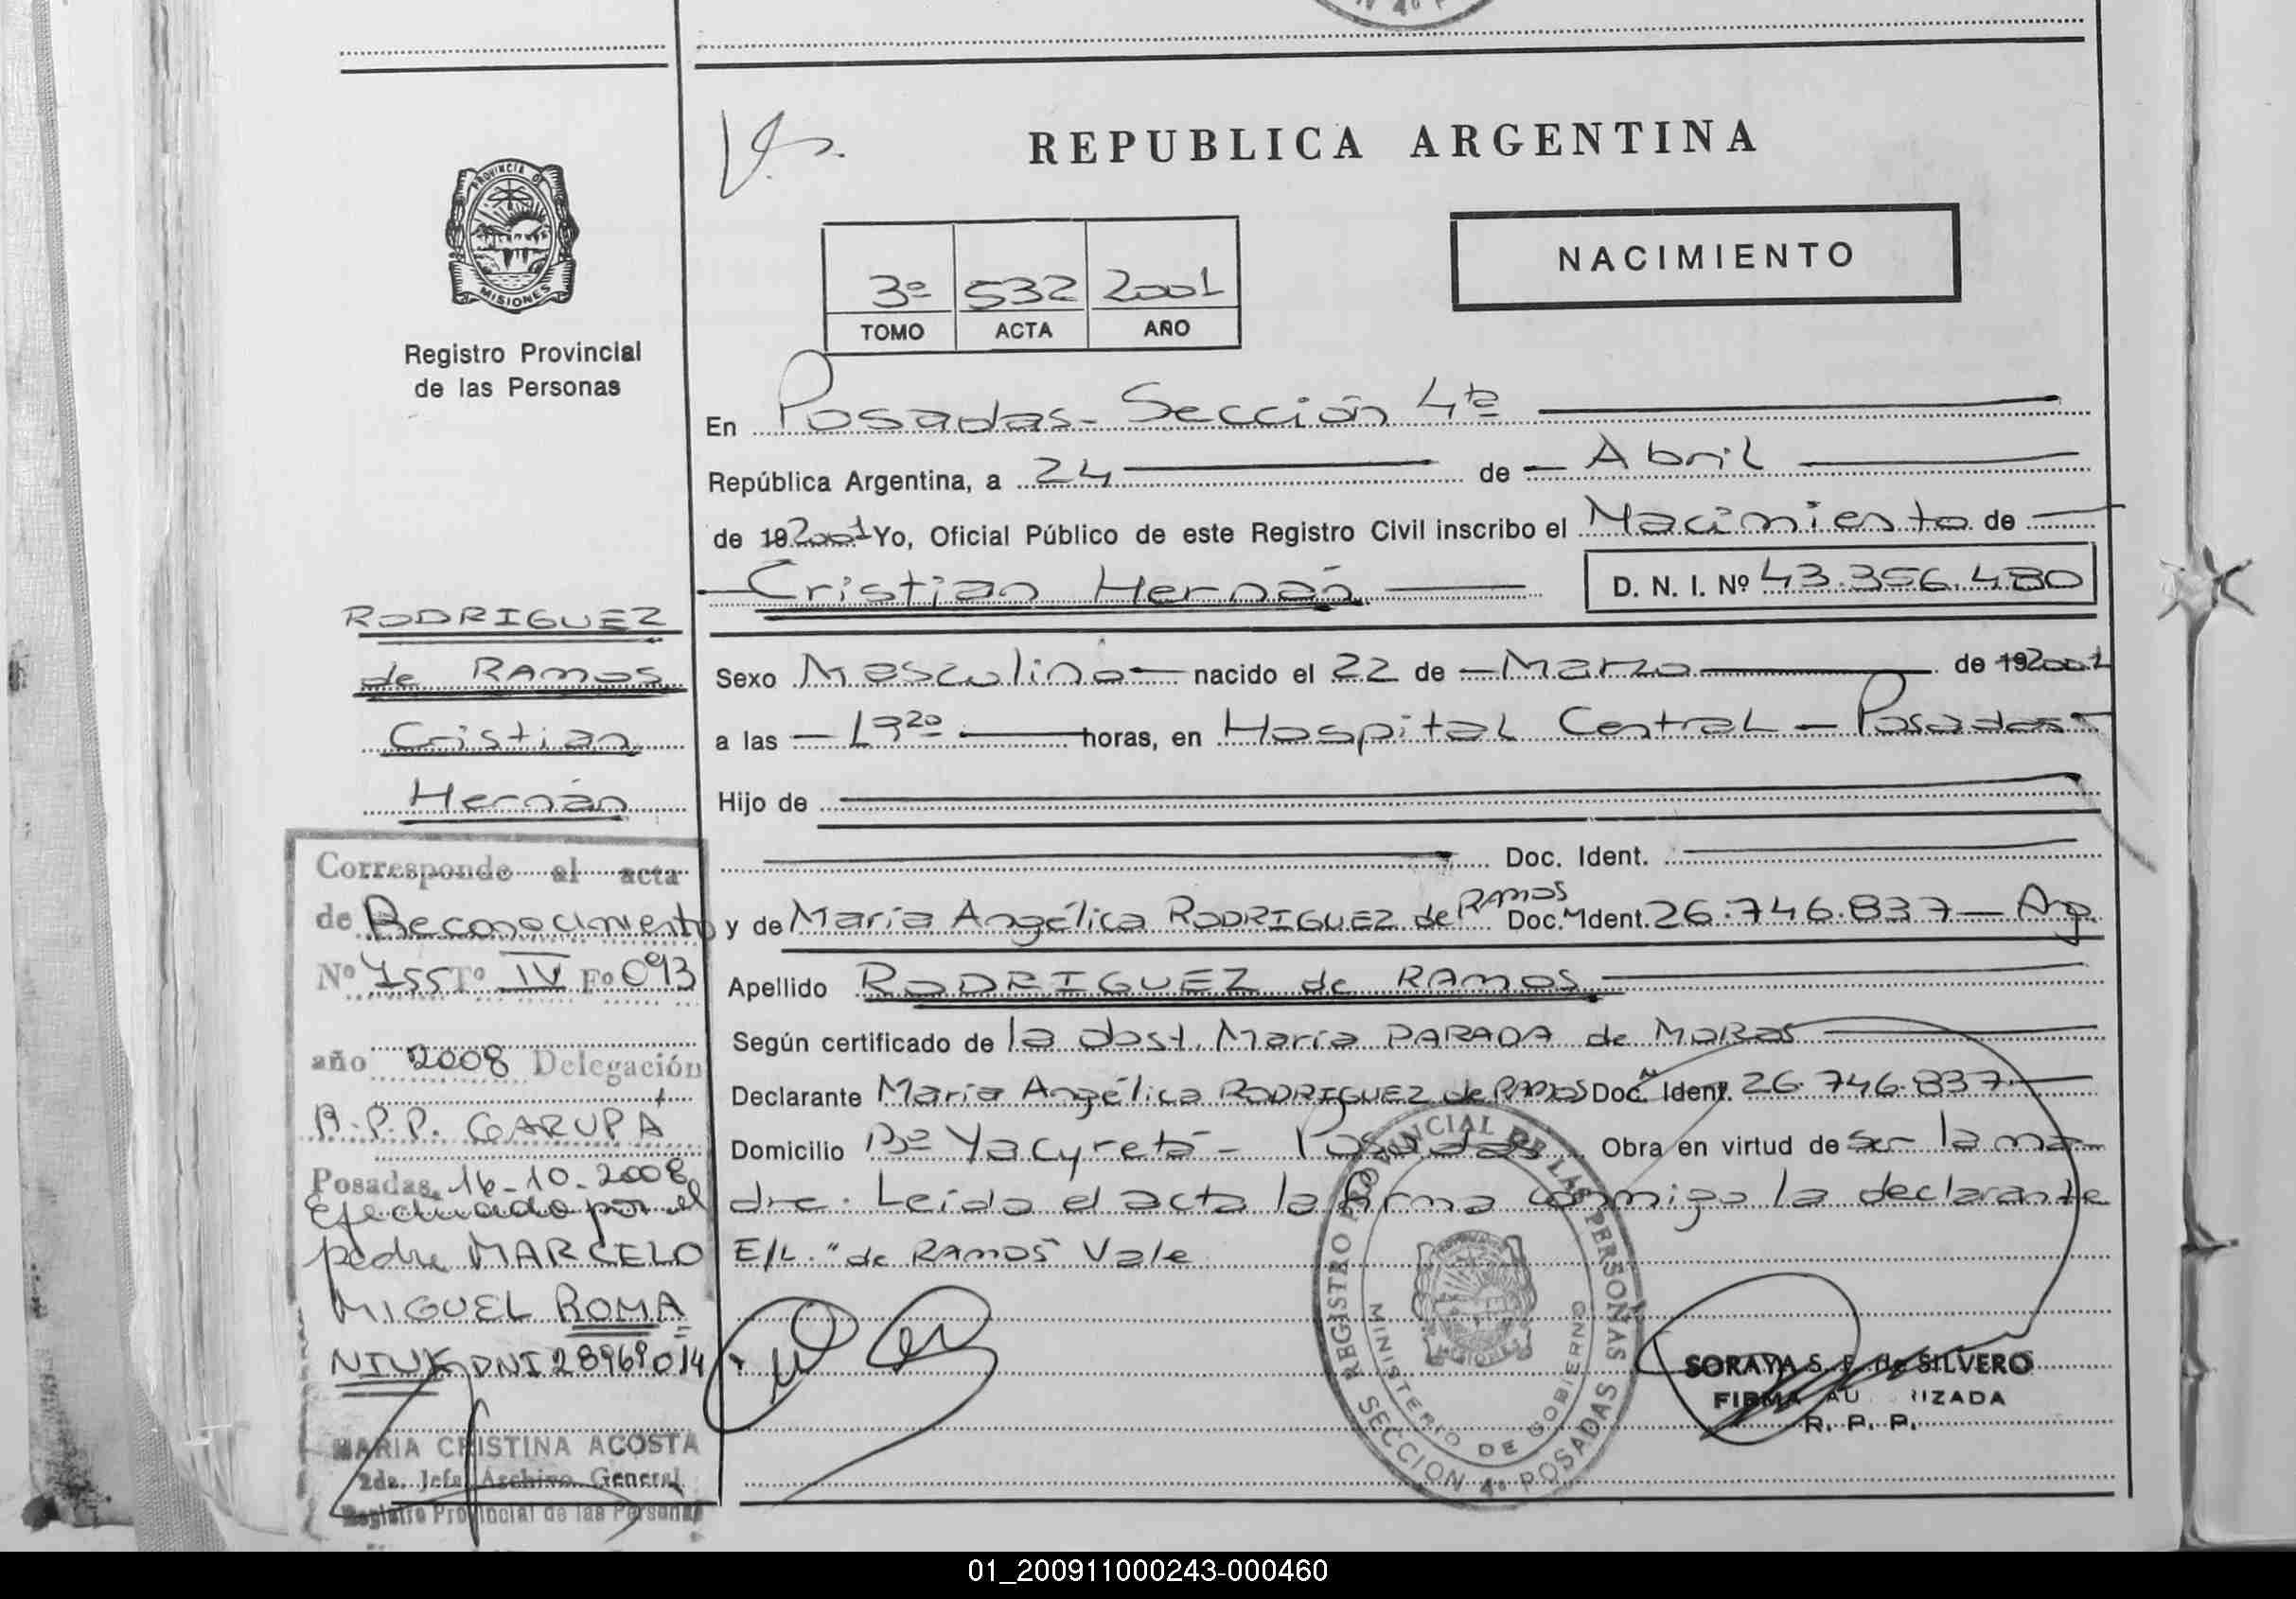 REPUBLICA ARGENTINA
PROVINCIA DE
MISIONES
Registro Provincial
de las Personas
NACIMIENTO
3º 532 2001
TOMO ACTA AÑO
En Posadas - Sección 4ta
República Argentina, a 24 de Abril
de 19 2001 Yo, Oficial Público de este Registro Civil inscribo el Nacimiento de
Cristian Hernán D. N. I. Nº 43.356.480
RODRIGUEZ
de RAMOS
Cristian
Hernán
Sexo Masculino nacido el 22 de Marzo de 19 2001
a las 19 20 horas, en Hospital Central - Posadas
Hijo de
Doc. Ident.
y de María Angélica RODRIGUEZ de RAMOS Doc. Ident. 26.746.837 - Arg.
Apellido RODRIGUEZ de RAMOS
Según certificado de la Obst. María PARADA de MORAS
Declarante María Angélica RODRIGUEZ de RAMOS Doc. Ident. 26.746.837
Domicilio Bº Yacyretá - Posadas Obra en virtud de ser la ma-
dre. Leída el acta la firma conmigo la declarante
E/L. "de RAMOS" Vale
Corresponde al acta
de Reconocimiento
Nº 755 Tº IV Fº 093
año 2008 Delegación
R.P.P. GARUPA
Posadas, 16-10-2008
Efectuado por el
padre MARCELO
MIGUEL ROMA
DNI 28969014
MARIA CRISTINA ACOSTA
2da. Jefa Archivo General
Registro Provincial de las Personas
REGISTRO PROVINCIAL DE LAS PERSONAS
MINISTERIO DE GOBIERNO
SECCION 4º POSADAS
SORAYA S. de SILVERO
FIRMA AU RIZADA
R. P. P.
01_200911000243-000460